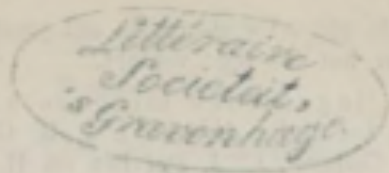 Littéraire
Societeit,
's Gravenhage.